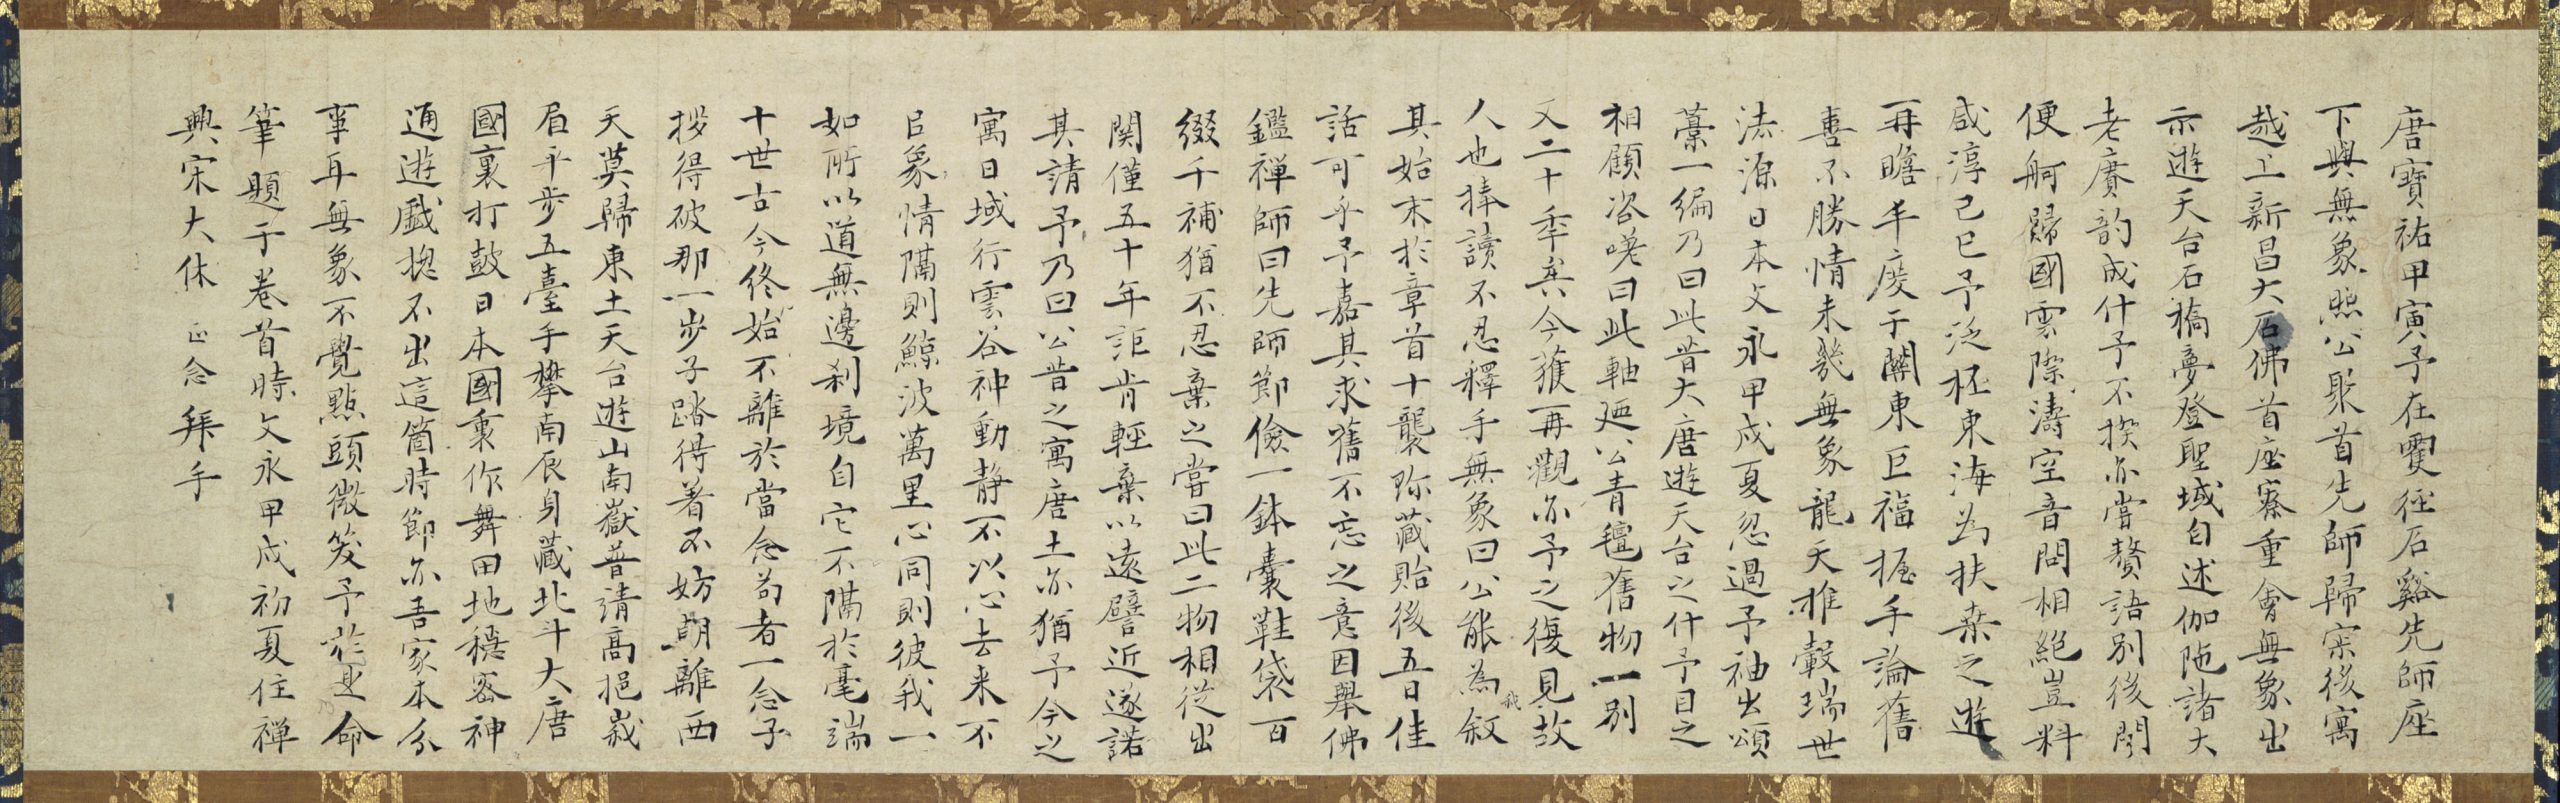 唐寶祐甲寅予在霅徑石谿先師座
下與無象照公聚首先師歸寂後寓
越上新昌大石佛首座寮重會無象出
示遊天台石橋夢登聖域自述伽陁諸大
老賡韵成什予不揆亦嘗贅語別後聞
便舸歸國雲際濤空音問相絕豈料
咸淳己巳予泛杯東海為扶桒之遊
再瞻丰度于關東巨福握手論舊
喜不勝情未幾無象龍天推轂瑞世
法源日本文永甲戌夏忽過予袖出頌
藁一編乃曰此昔大唐遊天台之什予目之
相顧咨嗟曰此軸廼公青氊舊物一別
又二十年矣今獲再觀亦予之復見故
人也捧讀不忍釋手無象曰公能為我敘
其始末於章首十襲珎藏貽後五日佳
話可乎予嘉其求舊不忘之意因舉佛
鑑禅師曰先師節儉一鉢囊鞋袋百
綴千補猶不忍棄之嘗曰此二物相從出
関僅五十年詎肯輕棄以遠譬近遂諾
其請予乃曰公昔之寓唐土亦猶予今之
寓日域行雲谷神動静不以心去来不
以象情隔則鯨波萬里心同則彼我一
如所以道無邊刹境自它不隔於毫端
十世古今終始不離於當念苟者一念子
拶得破那一步子踏得著不妨朝離西
天莫歸東土天台遊山南嶽普請高挹峩
眉平步五臺手攀南辰身藏北斗大唐
國裏打鼓日本國裏作舞田地穩密神
通遊戲揔不出這箇時節亦吾家本分
事耳無象不覺點頭微笑予於是命
筆題于卷首時文永甲戌初夏住禅
興宋大休 正念 拜手